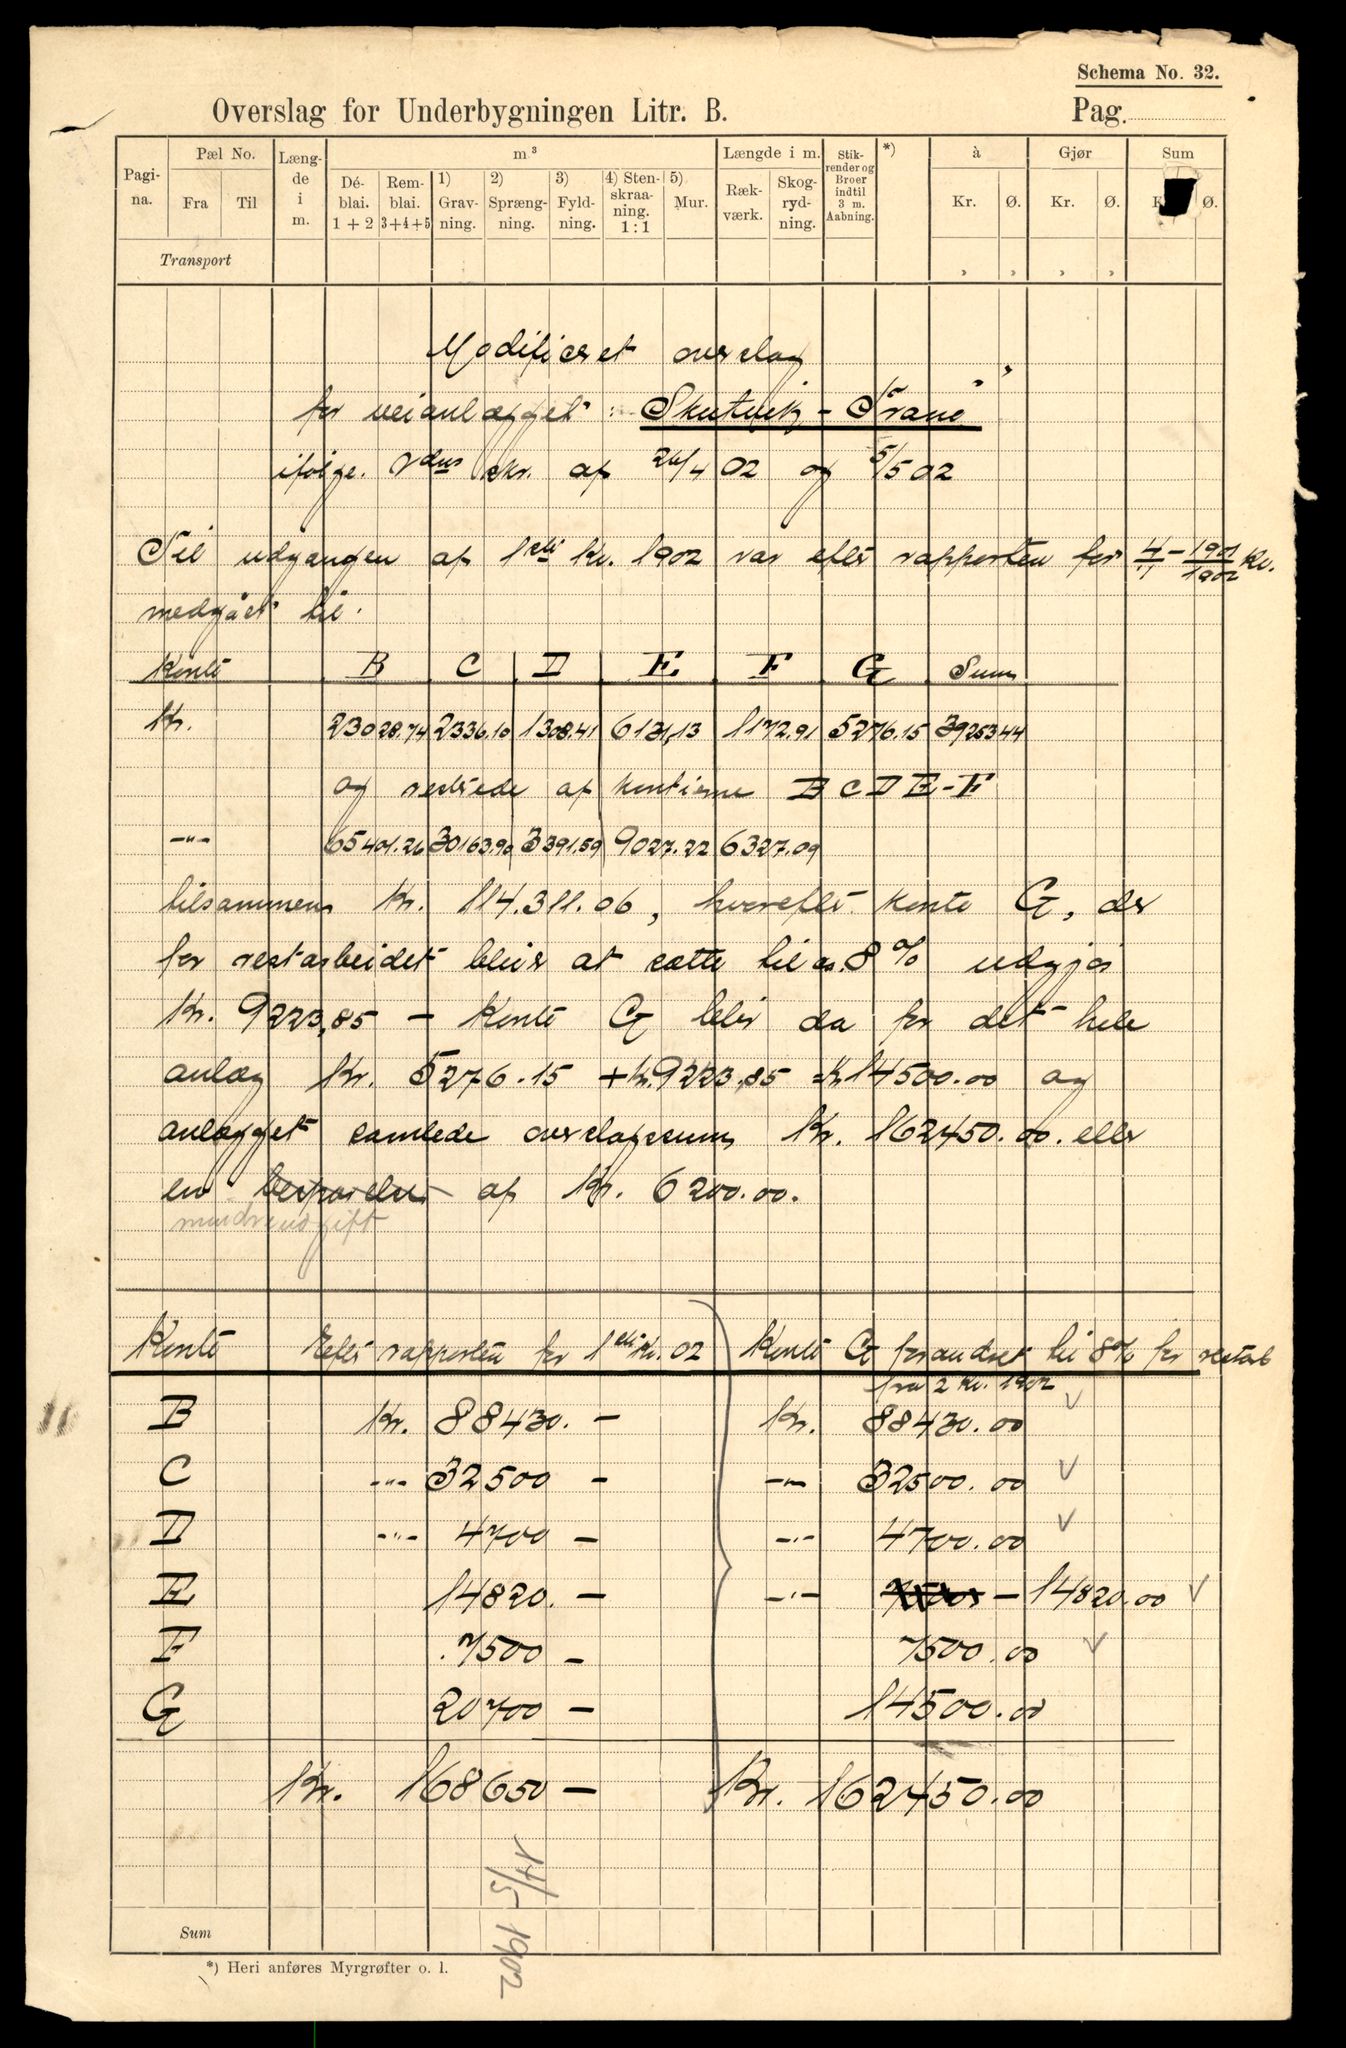 Schema No. 32.
Overslag for Underbygningen Litr. B. Pag.
Pagina. Pæl No. Fra Til Længde i m. m³ Déblai. 1 + 2 Remblai. 3+4+5 1) Gravning. 2) Sprængning. 3) Fyldning. 4) Stenskraaning. 1:1 5) Mur. Længde i m. Rækværk. Skogrydning. Stikrender og Broer indtil 3 m. Aabning. *) à Kr. Ø. Gjør Kr. Ø. Sum Ø.
Transport
Modificeret overslag
for veianlægget: Skutvik - Tranø
ifølge skr. af 26/4 02 og 5/5 02
Til udgangen af 1ste Kv. 1902 var efter rapporten for 1901/1902 Kv.
medgået til:
Konto B C D E F G Sum
Kr. 23028.74 2336.10 1308.41 6131.13 1172.91 5276.15 39253.44
og restede af kontierne B C D E - F
-"- 65401.26 30163.90 3391.59 9027.22 6327.09
tilsammen Kr. 114.311.06, hvorefter konto G, der
for restarbeidet blir at sætte til 8% udgjør
Kr. 9223,85 - Konto G blir da for det hele
anlæg Kr. 5276.15 + Kr. 9223,85 = Kr. 14500.00 og
anlægget samlede overslagssum Kr. 162450.00. eller
en besparelse af Kr. 6200.00.
mindreudgift
Konto Efter rapporten for 1ste Kv. 02 Konto G forandret til 8% for restarb
fra 2 Kv. 1902
B Kr. 88430. - Kr. 88430.00
C -"- 32500 - -"- 32500.00
D -"- 4700 - -"- 4700.00
E 14820. - -"- - 14820.00
F 7500 - 7500.00
G 20700 - 14500.00
Kr. 168650 - Kr. 162450.00
14/5 1902
Sum
*) Heri anføres Myrgrøfter o. l.